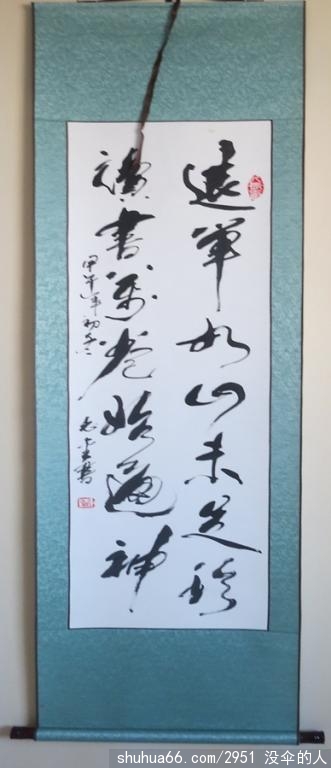 退筆如山未足珍
讀書萬卷始通神
甲午年初冬
書
shuhua66.com/2951 没伞的人